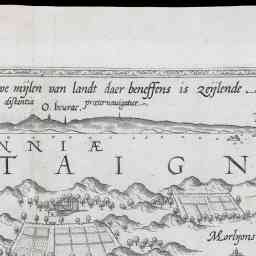 we mijlen van landt daer beneffens is zeijlende
distantia O. bourac. præternavigatur
NNIÆ
TAIGN
Morlijons